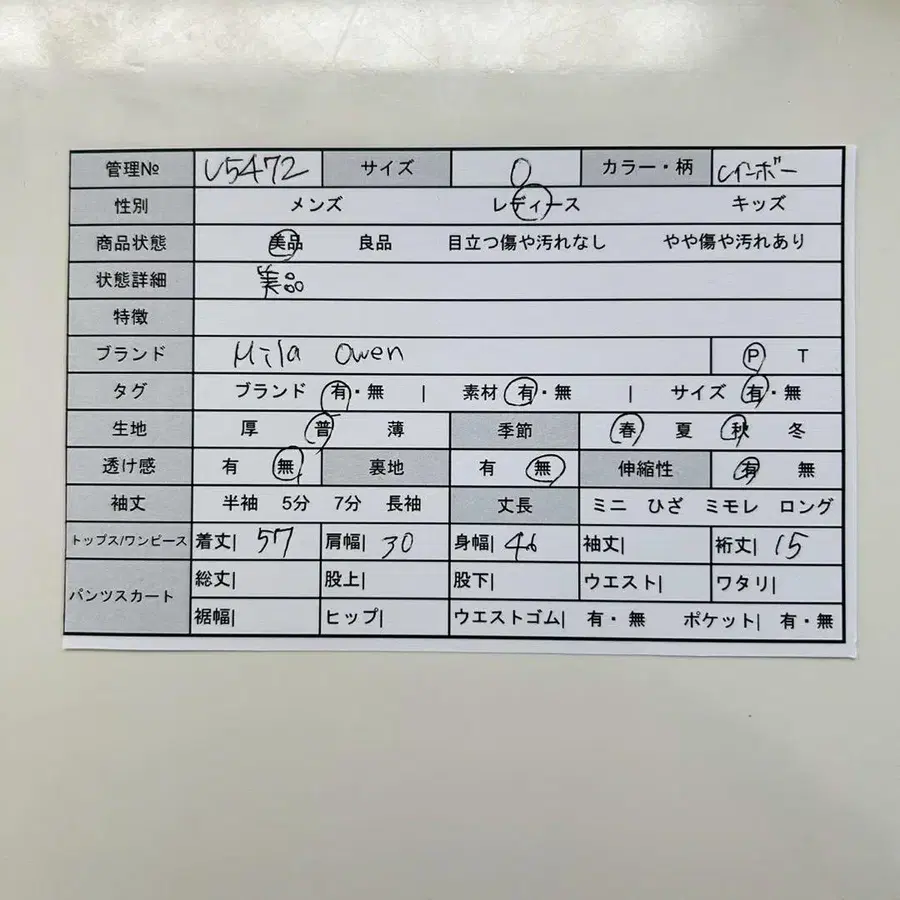 管理№ U5472 サイズ 0 カラー・柄 レインボー
性別 メンズ レディース キッズ
商品状態 美品 良品 目立つ傷や汚れなし やや傷や汚れあり
状態詳細 美品
特徴
ブランド Mila Owen P T
タグ ブランド 有・無 | 素材 有・無 | サイズ 有・無
生地 厚 普 薄 季節 春 夏 秋 冬
透け感 有 無 裏地 有 無 伸縮性 有 無
袖丈 半袖 5分 7分 長袖 丈長 ミニ ひざ ミモレ ロング
トップス/ワンピース 着丈| 57 肩幅| 30 身幅| 46 袖丈| 裄丈| 15
パンツスカート 総丈| 股上| 股下| ウエスト| ワタリ|
裾幅| ヒップ| ウエストゴム| 有・無 ポケット| 有・無